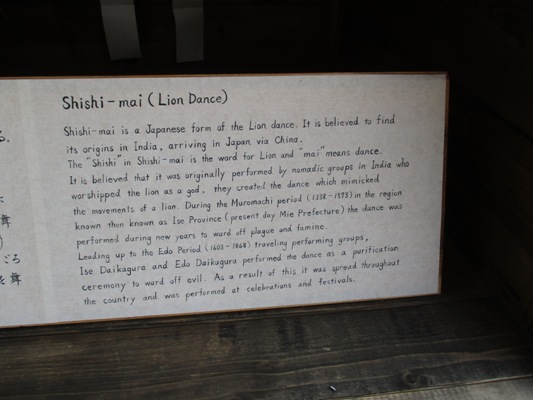 Shishi-mai (Lion Dance)
Shishi-mai is a Japanese form of the Lion dance. It is believed to find
its origins in India, arriving in Japan via China.
The "Shishi" in Shishi-mai is the word for Lion and "mai" means dance.
It is believed that it was originally performed by nomadic groups in India who
worshipped the lion as a god, they created the dance which mimicked
the movements of a lion. During the Muromachi period (1338-1573) in the region
known then known as Ise Province (present day Mie Prefecture) the dance was
performed during new years to ward off plague and famine.
Leading up to the Edo Period (1603-1868) traveling performing groups,
Ise Daikagura and Edo Daikagura performed the dance as a purification
ceremony to ward off evil. As a result of this it was spread throughout
the country and was performed at celebrations and festivals.
る.
舞
)
ごろ
舞